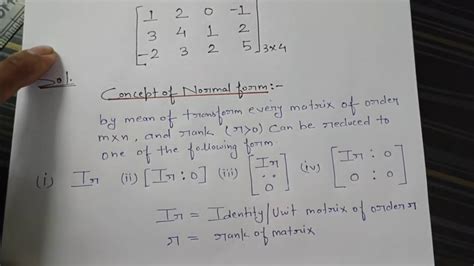 1 2 0 -1
3 4 1 2
-2 3 2 5 3×4
Sol.
Concept of Normal form:-
by mean of transform every matrix of order
m×n, and rank (r>0) can be reduced to
one of the following form
(i) Ir (ii) [Ir : 0] (iii) [Ir .. 0] (iv) [Ir : 0 0 : 0]
Ir = Identity/Unit matrix of order r
r = rank of matrix